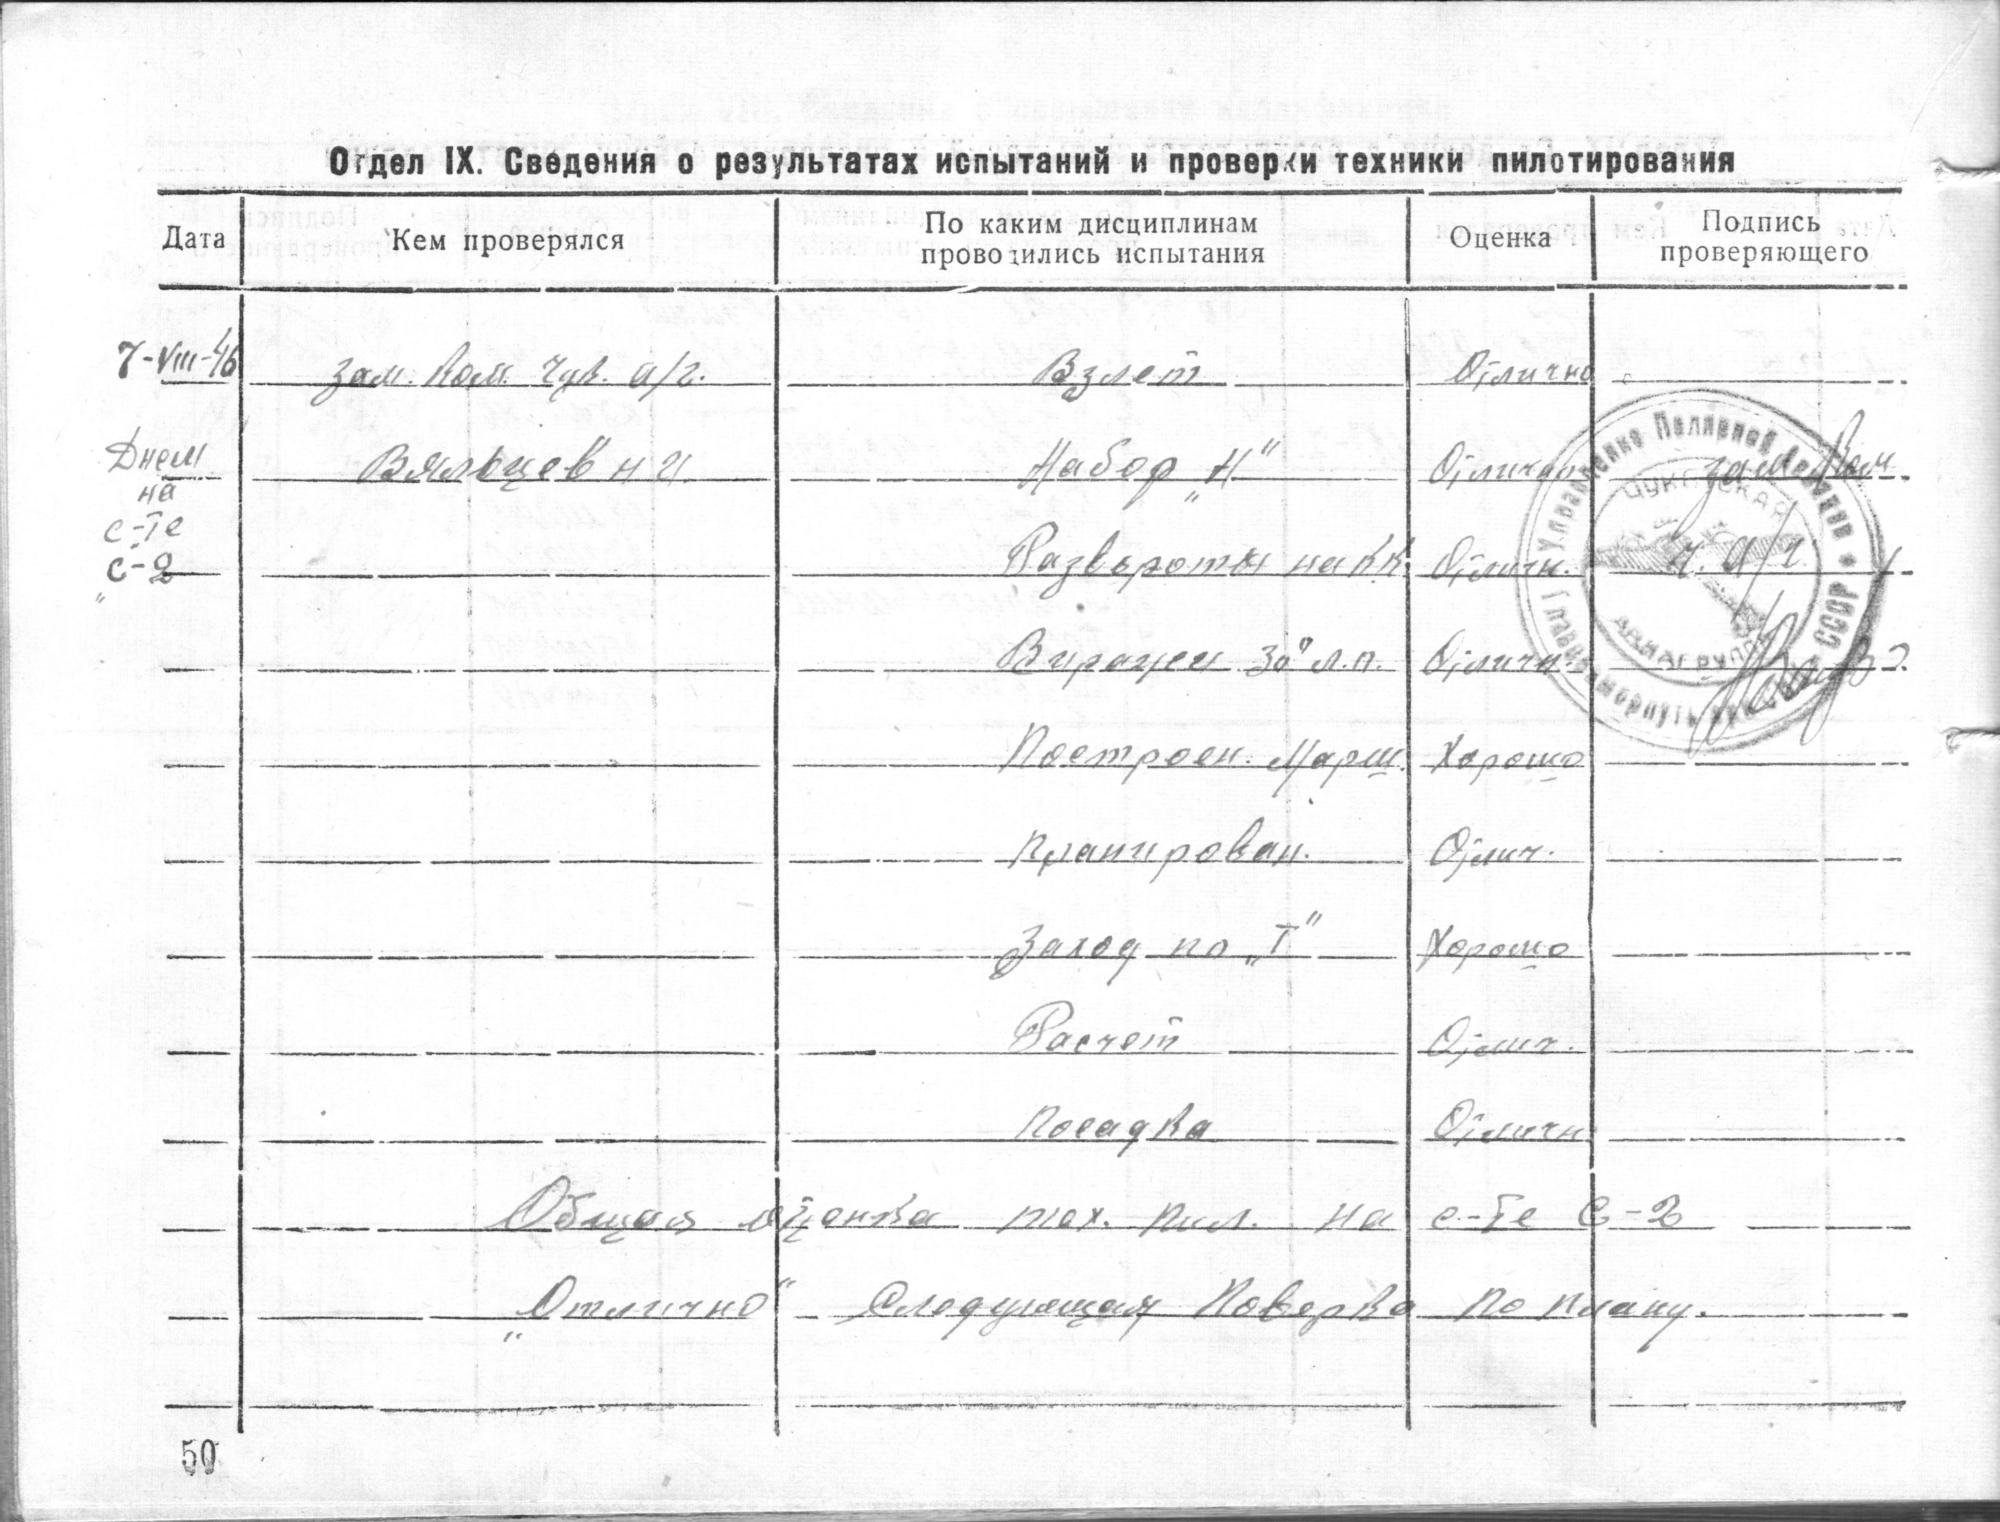 Отдел IX. Сведения о результатах испытаний и проверки техники пилотирования
Дата Кем проверялся По каким дисциплинам проводились испытания Оценка Подпись проверяющего
7-VIII-46 Зам. Ком. Чук. а/г. Взлет Отлично
Днем Вяльцев Набор „Н“ Отлично Зам Ком
на
с-те
С-2 Развороты на КК. Отличн. Ч. а/г
Виражи 30° л.п. Отличн.
Построен. Марш. Хорошо
Планирован. Отлич.
Заход по „Т“ Хорошо
Расчет Отлич.
Посадка Отличн
Общая оценка тех. пил. на с-те С-2
„Отлично“ Следующая Поверка по плану.
Управление Полярной Авиации
Главсевморпути при СССР
ЧУКОТСКАЯ
АВИАГРУППА
50